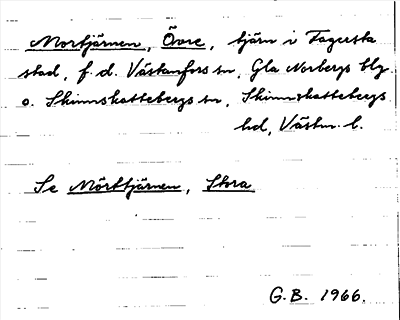 Mortjärnen, Övre, tjärn i Fagersta
stad, f.d. Västanfors sn, Gla Norbergs blg
o. Skinnskattebergs sn, Skinnskattebergs
hd, Västm. l.
Se Mörttjärnen, Stora
G.B. 1966.